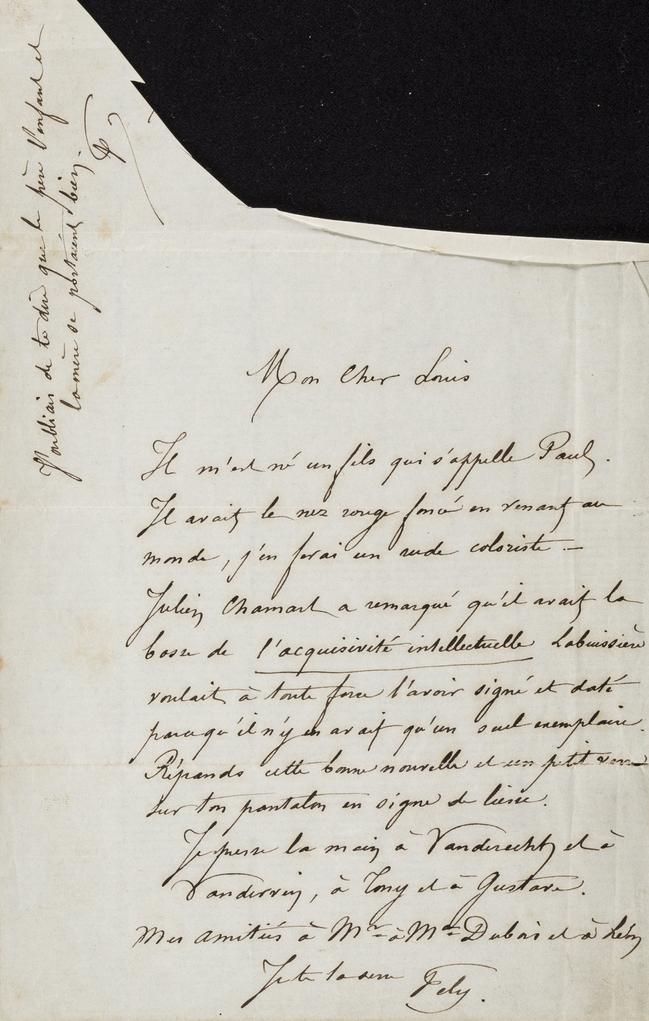 Mon Cher Louis
Il m'est né un fils qui s'appelle Paul.
Il avait le nez rouge foncé en venant au
monde, j'en ferai un rude coloriste —
Julien Chamart a remarqué qu'il avait la
bosse de l'acquisivité intellectuelle Labuissière
voulait à toute force l'avoir signé et daté
parcequ'il n'y en avait qu'un seul exemplaire.
Répands cette bonne nouvelle et un petit verre
sur ton pantalon en signe de liesse.
Je serre la main à Vanderecht et à
, à Tony et à Gustave.
Mes amitiés à Mr à Me Dubois et à Léon
Je te la serre Fely.
J'oubliais de te dire que le père l'enfant et
la mère se portaient bien.
F